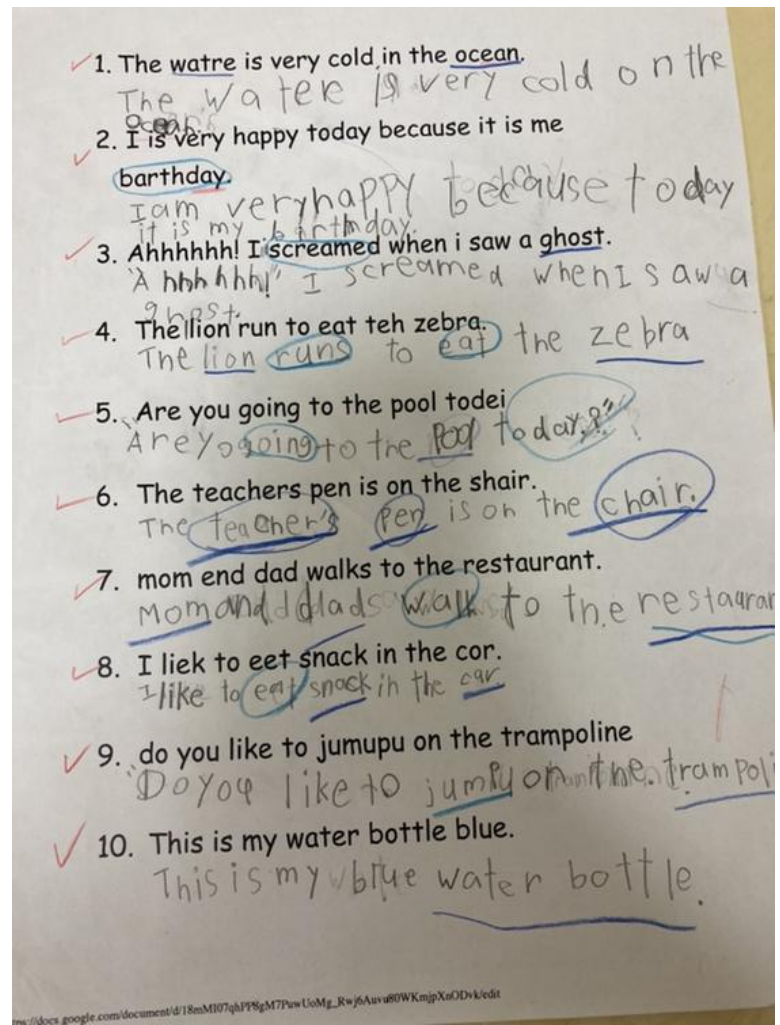 1. The watre is very cold in the ocean.
The water is very cold on the
ocean.
2. I is very happy today because it is me
barthday.
I am very happy because today
it is my birthday.
3. Ahhhhhh! I screamed when i saw a ghost.
"Ahhhhhh!" I screamed when I saw a
ghost.
4. The lion run to eat teh zebra.
The lion runs to eat the zebra
5. Are you going to the pool todei
Are yo going to the pool today?"
6. The teachers pen is on the shair.
The teacher's pen is on the chair.
7. mom end dad walks to the restaurant.
Mom and dad walk to the restauran
8. I liek to eet snack in the cor.
I like to eat snack in the car
9. do you like to jumupu on the trampoline
"Do you like to jump on the trampoli
10. This is my water bottle blue.
This is my blue water bottle.
docs.google.com/document/d/